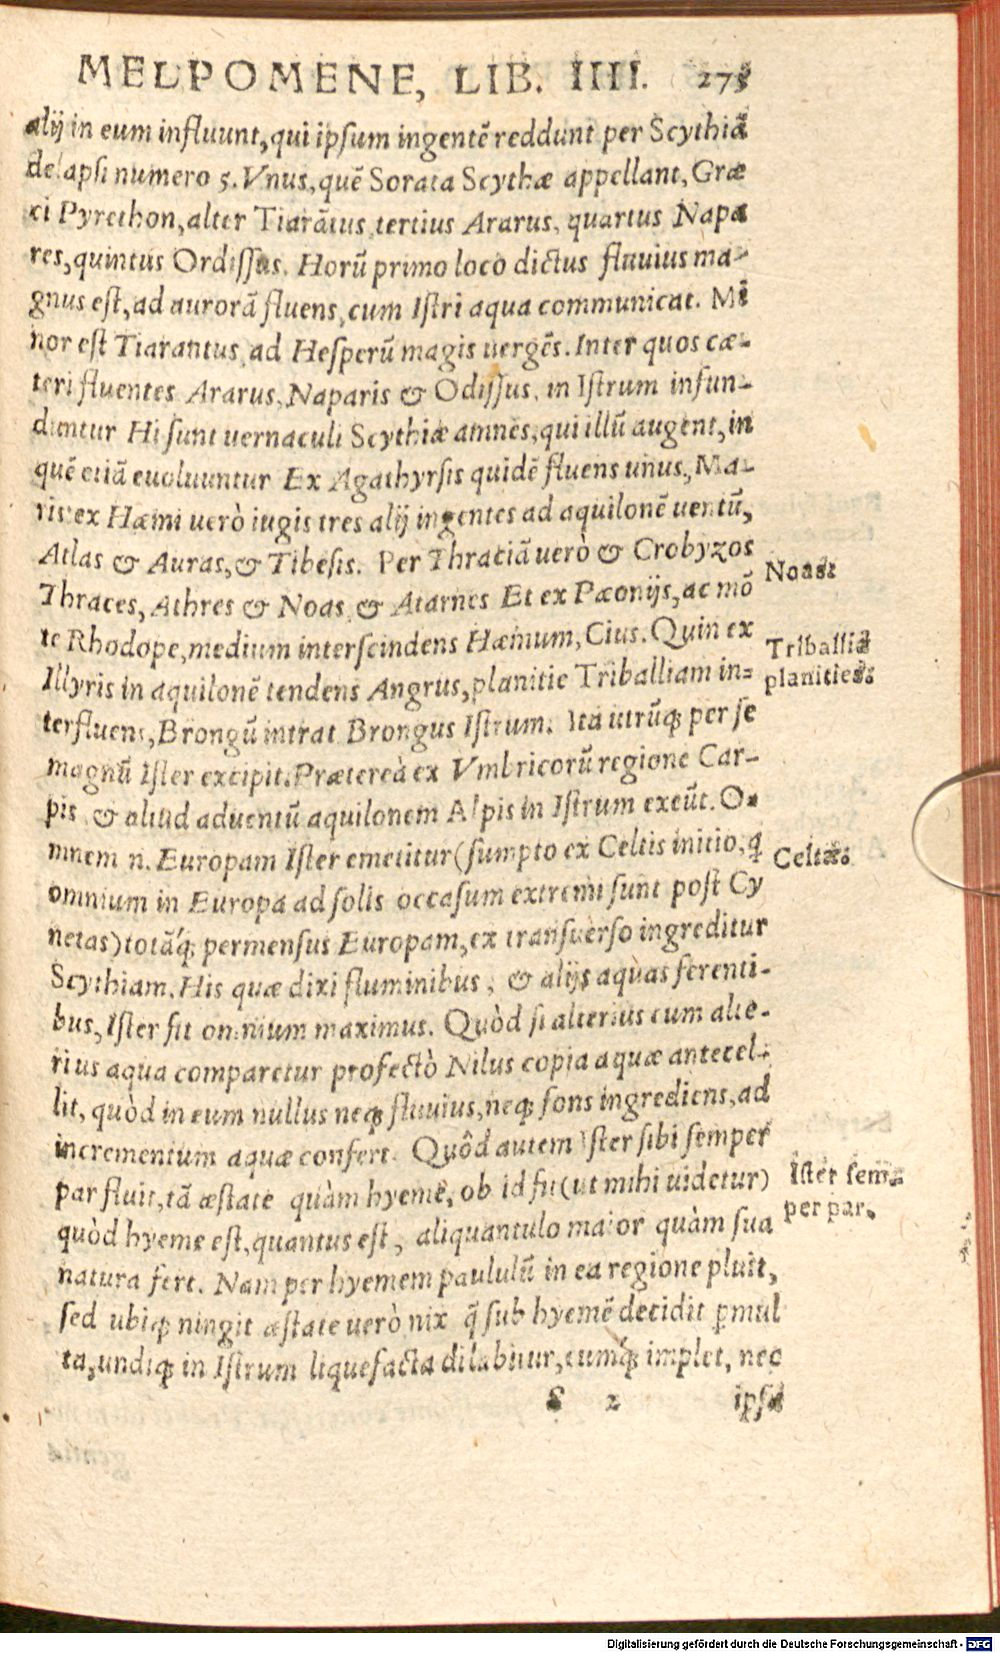 MELPOMENE, LIB. IIII. 275
alij in eum influunt, qui ipsum ingentē reddunt per Scythiā
delapsi numero 5. Vnus, quē Sorata Scythæ appellant, Græ
ci Pyrethon, alter Tiarātus tertius Ararus, quartus Napa
res, quintus Ordissus. Horū primo loco dictus fluuius ma-
gnus est, ad aurorā fluens, cum Istri aqua communicat. Mi
nor est Tiarantus, ad Hesperū magis uergēs. Inter quos cæ-
teri fluentes Ararus, Naparis & Odissus, in Istrum infun-
duntur Hi sunt uernaculi Scythiæ amnes, qui illū augent, in
quē etiā euoluuntur Ex Agathyrsis quidē fluens unus, Ma-
ris: ex Hæmi uerò iugis tres alij ingentes ad aquilonē uentū,
Atlas & Auras, & Tibesis. Per Thraciā uerò & Crobyzos
Noas.
Thraces, Athres & Noas & Atarnes Et ex Pæonijs, ac mō
te Rhodope, medium interscindens Hæmum, Cius. Quin ex
Triballia
Illyris in aquilonē tendens Angrus, planitie Triballiam in-
planities.
terfluens, Brongū intrat Brongus Istrum. Ita utrūq; per se
magnū Ister excipit. Præterea ex Vmbricorū regione Car-
pis & aliud aduentū aquilonem Alpis in Istrum exeūt. O-
mnem n. Europam Ister emetitur (sumpto ex Celtis initio, q
Celtæ.
omnium in Europa ad solis occasum extremi sunt post Cy
netas) totāq́; permensus Europam, ex transuerso ingreditur
Scythiam. His quæ dixi fluminibus, & alijs aquas ferenti-
bus, Ister fit omnium maximus. Quòd si alterius cum alte-
rius aqua comparetur profectò Nilus copia aquæ antecel-
lit, quòd in eum nullus neq; fluuius, neq; fons ingrediens, ad
incrementum aquæ confert. Quôd autem Ister sibi semper
Ister sem-
par fluit, tā æstate quàm hyeme, ob id fit (ut mihi uidetur)
per par.
quòd hyeme est, quantus est, aliquantulo maior quàm sua
natura fert. Nam per hyemem paululū in ea regione pluit,
sed ubiq; ningit æstate uerò nix q̄ sub hyemē decidit ꝑmul
ta, undiq; in Istrum liquefacta dilabitur, eumq́; implet, nec
S 2 ipsa
Digitalisierung gefördert durch die Deutsche Forschungsgemeinschaft - DFG